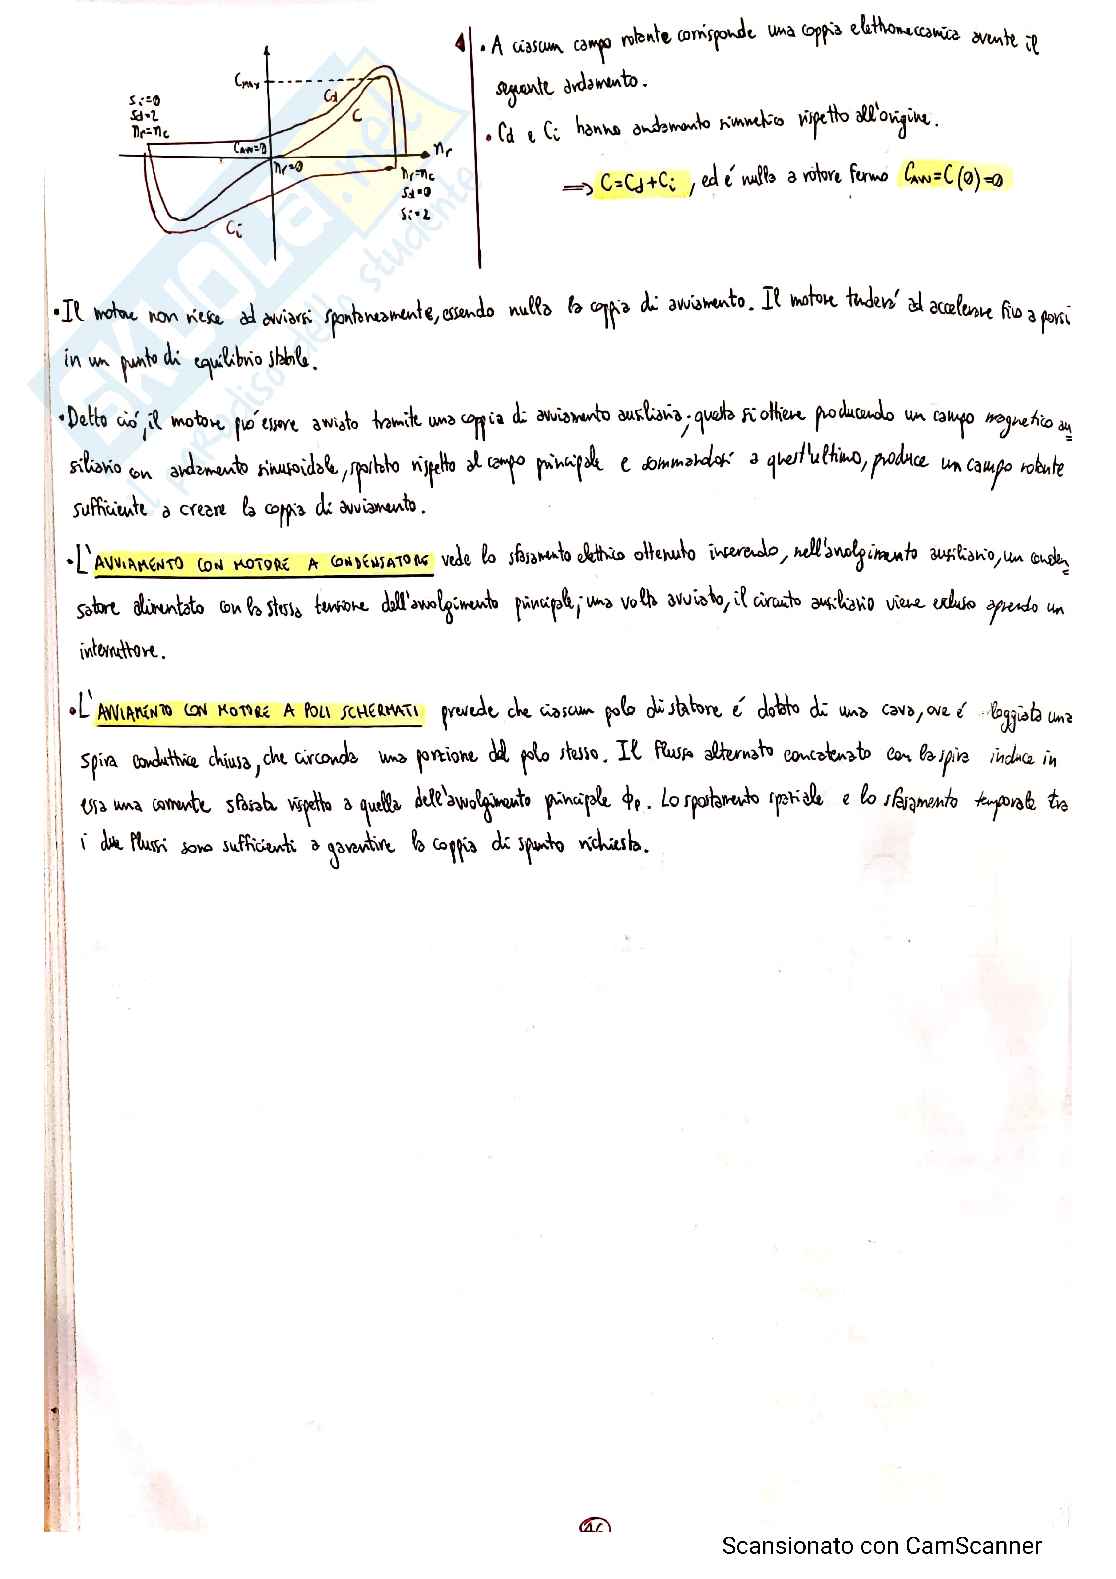 CMAX
Cd
C
Si=0
Sd=2
nr=nc
CAVV=0
nr=0
nr
nr=nc
Sd=0
Si=2
Ci
• A ciascun campo rotante corrisponde una coppia elettromeccanica avente il
seguente andamento.
• Cd e Ci hanno andamento simmetrico rispetto all'origine.
⇒ C=Cd+Ci, ed é nulla a rotore fermo CAVV=C(0)=0
• Il motore non riesce ad avviarsi spontaneamente, essendo nulla la coppia di avviamento. Il motore tenderá ad accelerare fino a porsi
in un punto di equilibrio stabile.
• Detto ció, il motore puó essere avviato tramite una coppia di avviamento ausiliaria; questa si ottiene producendo un campo magnetico au
siliario con andamento sinusoidale, spostato rispetto al campo principale e sommandosi a quest'ultimo, produce un campo rotante
sufficiente a creare la coppia di avviamento.
• L'AVVIAMENTO CON MOTORE A CONDENSATORE vede lo sfasamento elettrico ottenuto inserendo, nell'avvolgimento ausiliario, un conden
satore alimentato con la stessa tensione dell'avvolgimento principale; una volta avviato, il circuito ausiliario viene escluso aprendo un
interruttore.
• L'AVVIAMENTO CON MOTORE A POLI SCHERMATI prevede che ciascun polo di statore é dotato di una cava, ove é alloggiata una
spira conduttrice chiusa, che circonda una porzione del polo stesso. Il flusso alternato concatenato con la spira induce in
essa una corrente sfasata rispetto a quella dell'avvolgimento principale ϕp. Lo spostamento spaziale e lo sfasamento temporale tra
i due flussi sono sufficienti a garantire la coppia di spunto richiesta.
SKUOLA.net
il paradiso dello studente
Scansionato con CamScanner